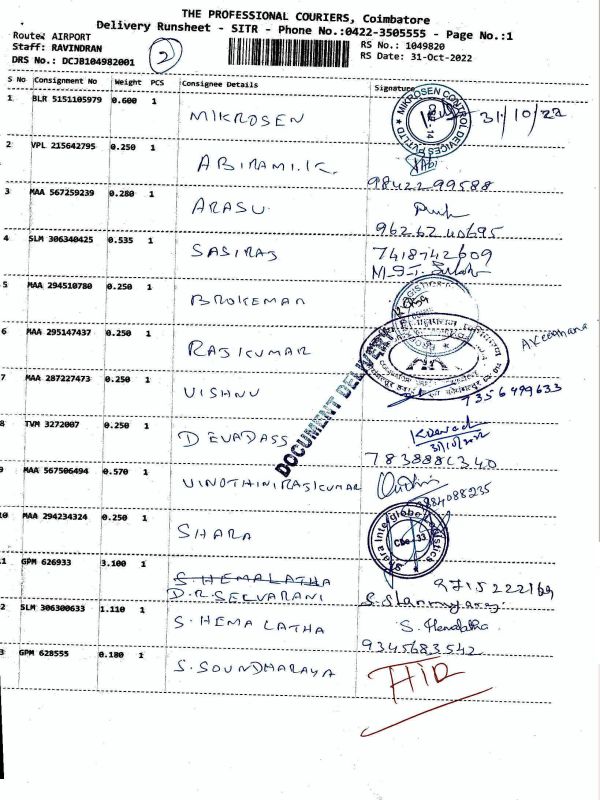 THE PROFESSIONAL COURIERS, Coimbatore
Delivery Runsheet - SITR - Phone No.:0422-3505555 - Page No.:1
Route: AIRPORT
Staff: RAVINDRAN
DRS No.: DCJB104982001
2
RS No.: 1049820
RS Date: 31-Oct-2022
S No Consignment No Weight PCS Consignee Details Signature
1 BLR 5151105979 0.600 1 MIKROSEN 31/10/22
MIKROSEN CONTROL DEVICES PVT LTD
CBE-14
2 VPL 215642795 0.250 1 ABIRAMI.K. Abi
98422 99588
3 MAA 567259239 0.280 1 ARASU
96262 40695
4 SLM 306340425 0.535 1 SASIRAJ 7418742609
5 MAA 294510780 0.250 1 BROKEMAN
6 MAA 295147437 0.250 1 RAJKUMAR
DOCUMENT DELIVER
7 MAA 287227473 0.250 1 VISHNU 7356499633
8 TVM 3272007 0.250 1 DEVADASS
9 MAA 567506494 0.570 1 VINOTHINIRAJKUMAR
10 MAA 294234324 0.250 1 SHARA
Shara Interglobe Logistics
Cbe-33
1 GPM 626933 3.100 1 S.HEMALATHA
D.R.SELVARANI
2 SLM 306300633 1.110 1 S.HEMA LATHA S. Hemalatha
9345683542
3 GPM 628555 0.180 1 S.SOUNDHARAYA